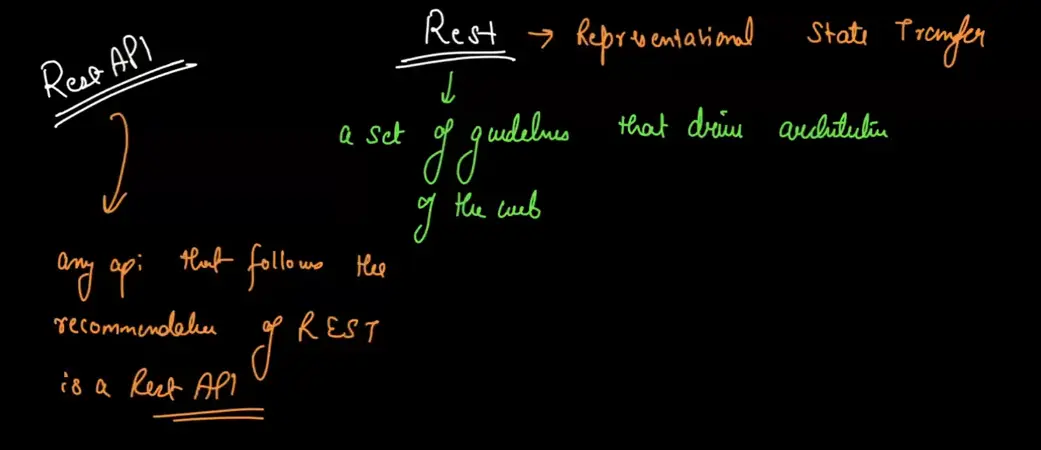 Rest → Representational State Transfer
Rest API
a set of guidelines that drive architecture
of the web
any api that follows the
recommendation of REST
is a Rest API